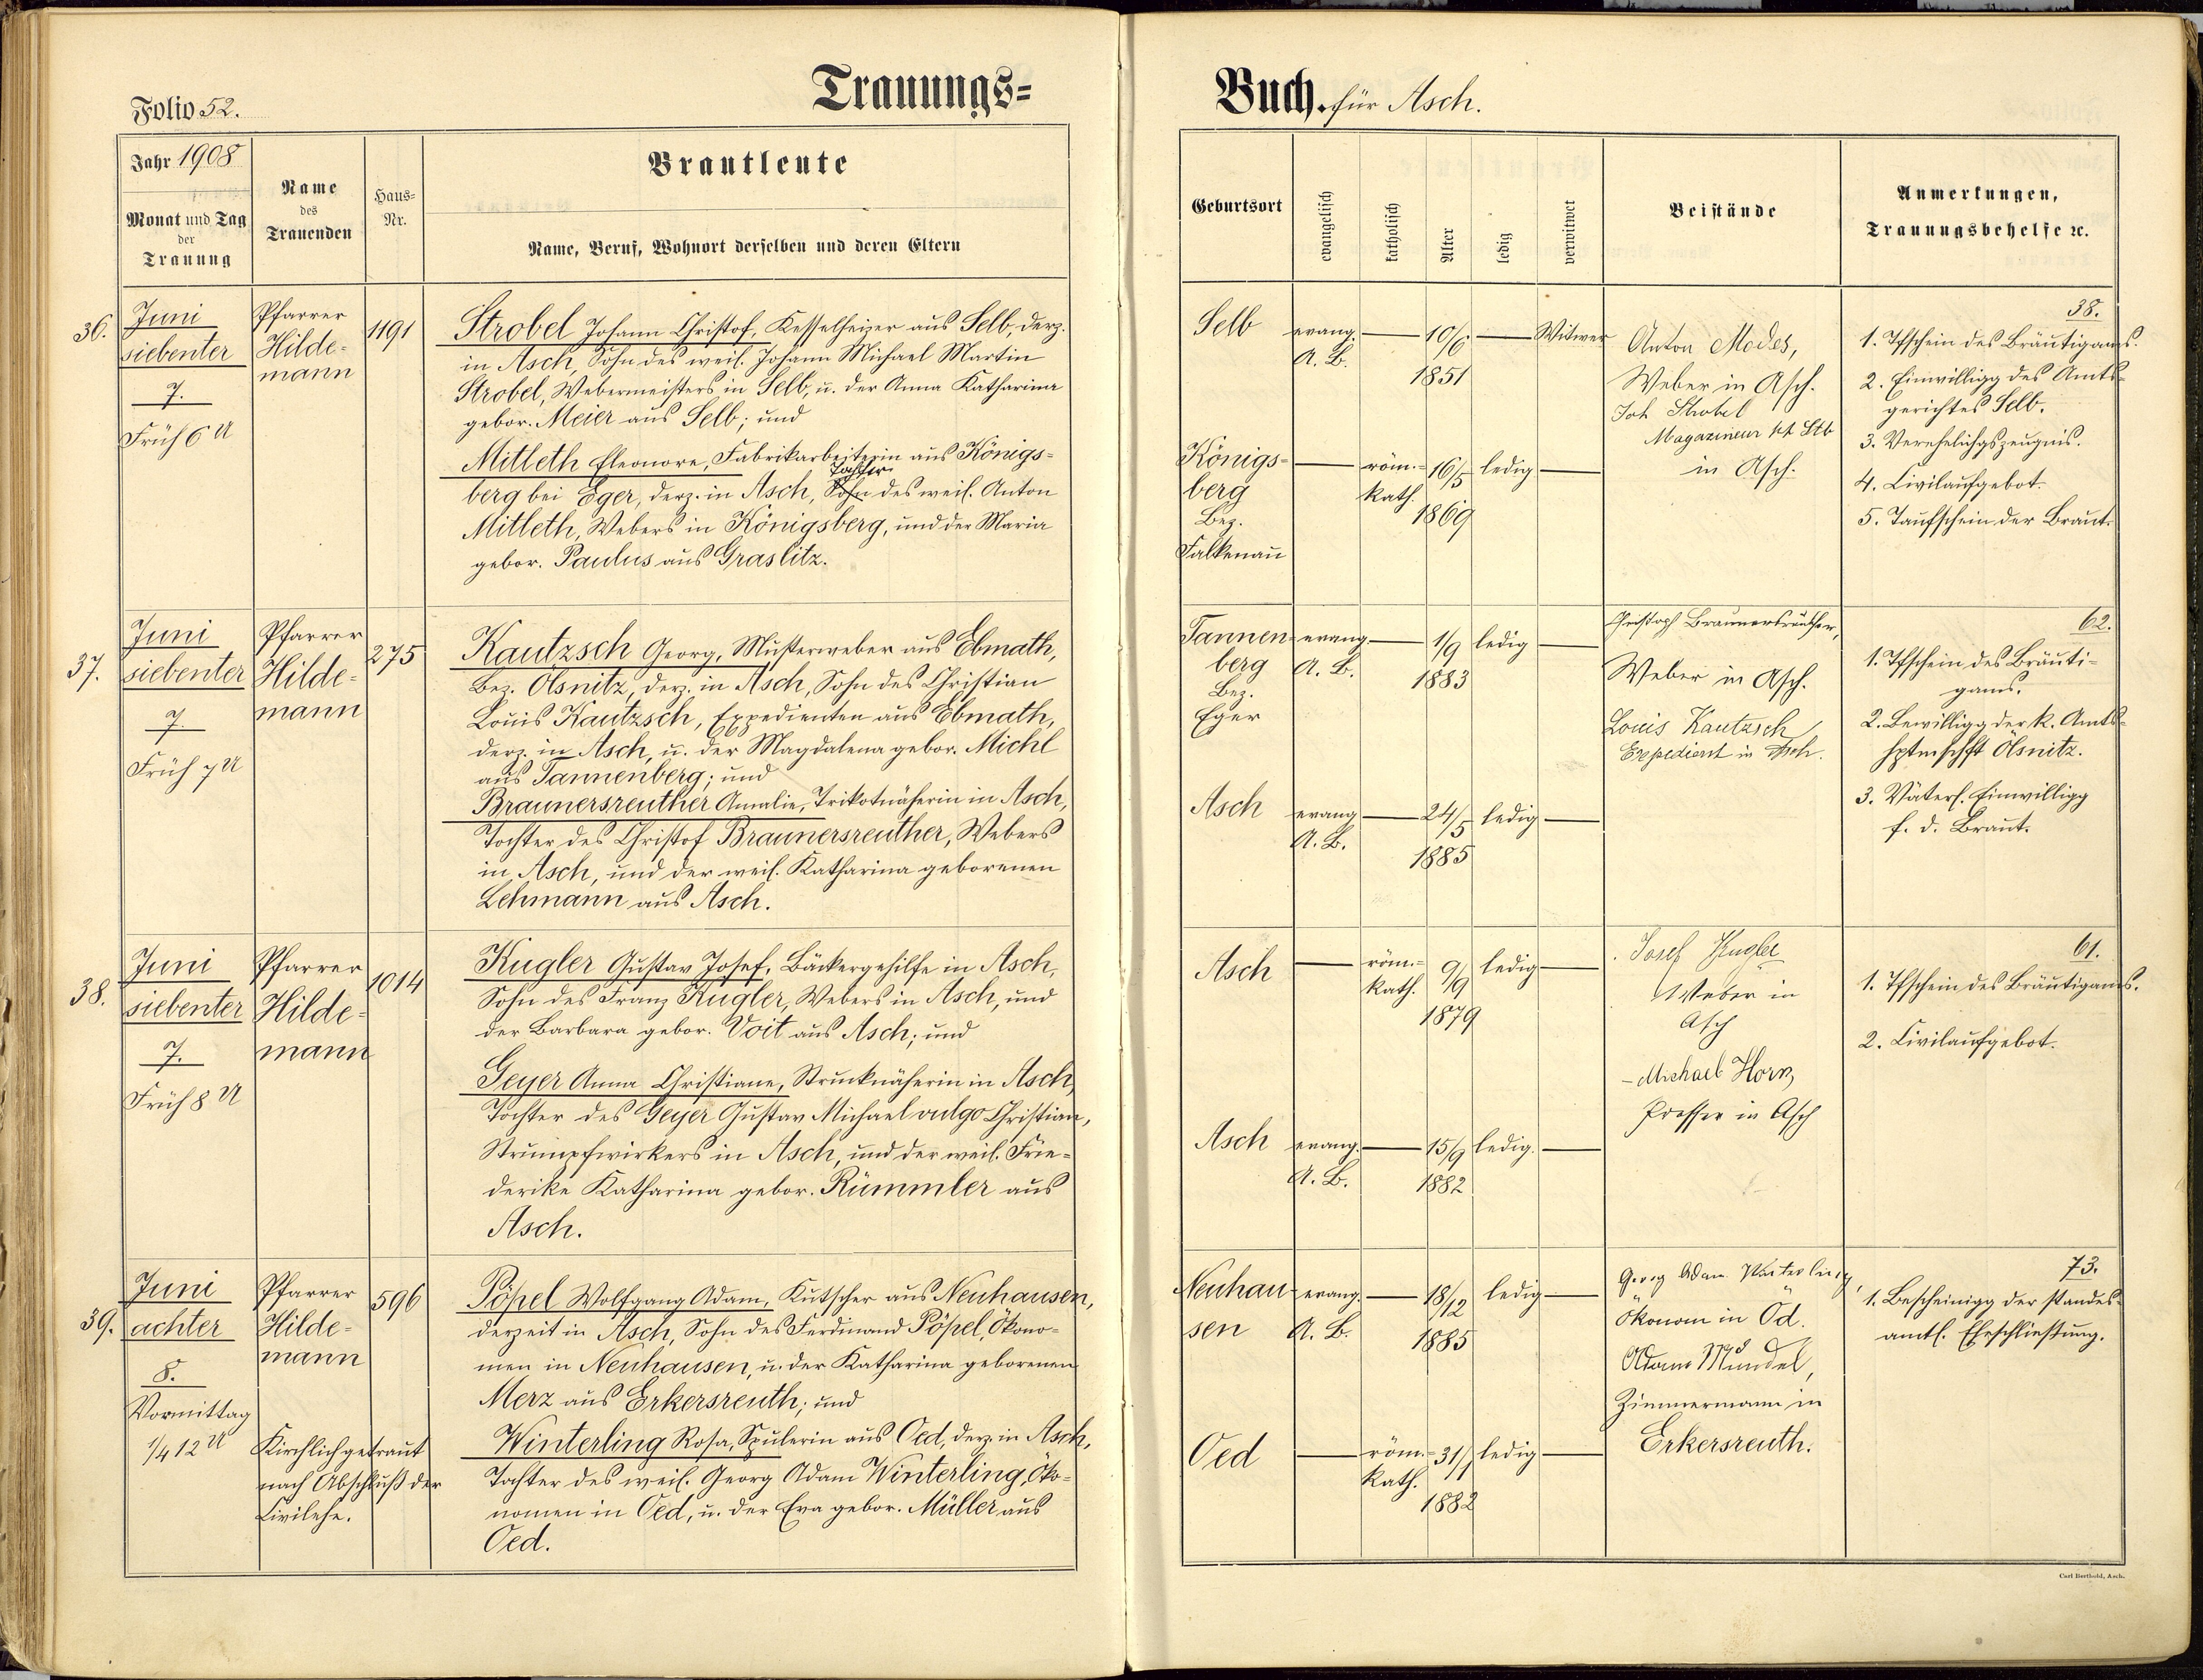 Folio 52.
Trauungs=
Jahr 1908
Monat und Tag
der
Trauung
Name
des
Trauenden
Haus=
Nr.
Brautleute
Name, Beruf, Wohnort derselben und deren Eltern
36.
Juni
siebenter
7.
Früh 6 U
Pfarrer
Hilde-
mann
1191
Strobel Johann Christof, Kesselheizer aus Selb, derz.
in Asch, Sohn des weil. Johann Michael Martin
Strobel, Webermeisters in Selb, u. der Anna Katharina
gebor. Meier aus Selb; und
Mitleth Eleonore, Fabrikarbeiterin aus Königs=
Tochter
berg bei Eger, derz. in Asch, Sohn des weil. Anton
Mitleth, Webers in Königsberg, und der Maria
gebor. Paulus aus Graslitz.
37.
Juni
siebenter
7.
Früh 7 U
Pfarrer
Hilde=
mann
275
Kautzsch Georg, Musterweber aus Ebmath,
Bez. Ölsnitz, derz. in Asch, Sohn des Christian
Louis Kautzsch, Expedienten aus Ebmath,
derz. in Asch, u. der Magdalena gebor. Michl
aus Tannenberg; und
Braunersreuther Amalie, Trikotnäherin in Asch,
Tochter des Christof Braunersreuther, Webers
in Asch, und der weil. Katharina geborenen
Lehmann aus Asch.
38.
Juni
siebenter
7.
Früh 8 U
Pfarrer
Hilde=
mann
1014
Kugler Gustav Josef, Bäckergehilfe in Asch,
Sohn des Franz Kugler, Webers in Asch, und
der Barbara gebor. Voit aus Asch; und
Geyer Anna Christiane, Strucknäherin in Asch,
Tochter des Geyer Gustav Michael vulgo Christian,
Strumpfwirkers in Asch, und der weil. Frie=
derike Katharina gebor. Rümmler aus
Asch.
39.
Juni
achter
8.
Vormittag
1/4 12 U
Pfarrer
Hilde=
mann
Kirchlich getraut
nach Abschluß der
Civilehe.
596
Pöpel Wolfgang Adam, Kutscher aus Neuhausen,
derzeit in Asch, Sohn des Ferdinand Pöpel, Ökono=
men in Neuhausen, u. der Katharina geborenen
Merz aus Erkersreuth; und
Winterling Rosa, Spulerin aus Oed, derz. in Asch,
Tochter des weil. Georg Adam Winterling, Öko=
nomen in Oed, u. der Eva gebor. Müller aus
Oed.
Buch. für Asch.
Geburtsort
evangelisch
katholisch
Alter
ledig
verwitwet
Beistände
Anmerkungen,
Trauungsbehelfe ꝛc.
Selb
evang.
A. B.
10/6.
1851
Witwer
Königs=
berg
Bez.
Falkenau
röm.=
kath.
16/5
1869
ledig
Anton Modes,
Weber in Asch.
Joh Strobel
Magazineur
in Asch.
38.
1. Tfschein des Bräutigams.
2. Einwilligg des Amts=
gerichtes Selb.
3. Verehelichgszeugnis.
4. Civilaufgebot.
5. Taufschein der Braut.
Tannen=
berg
Bez.
Eger
evang
A. B.
1/9
1883
ledig
Asch
evang
A. B.
24/5
1885
ledig
Christoph Braunersreuther,
Weber in Asch.
Louis Kautzsch
Expedient in Asch.
62.
1. Tfschein des Bräuti=
gams.
2. Bewilligg der k. Amts=
hptmschft Ölsnitz.
3. Väterl. Einwilligg
f. d. Braut.
Asch
röm.=
kath.
9/9
1879
ledig
Asch
evang.
A. B.
15/9
1882
ledig.
Josef Kugler
Weber in
Asch
Michael Horn,
Presser in Asch
61.
1. Tfschein des Bräutigams.
2. Civilaufgebot.
Neuhau=
sen
evang.
A. B.
18/12
1885
ledig
Oed
röm.=
kath.
31/1
1882
ledig
Georg Adam Winterling,
Ökonom in Öd.
Adam Mündel,
Zimmermann in
Erkersreuth.
73.
1. Bescheinigg der standes=
amtl. Eheschließung.
Carl Berthold, Asch.